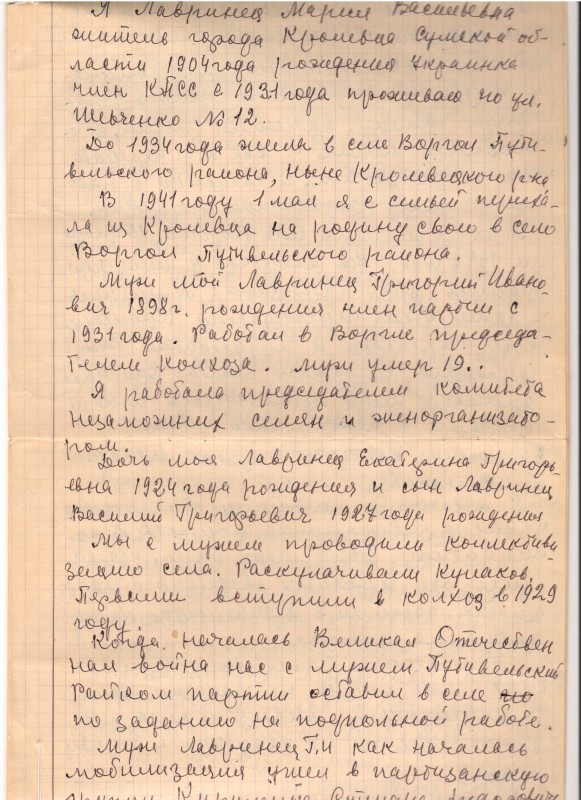 Я Лавринец Мария Васильевна
житель города Кролевца Сумской об-
ласти 1904 года рождения Украинка
член КПСС с 1931 года проживаю по ул.
Шевченко № 12.
До 1934 года жила в селе Воргол Пути-
вельского района, ныне Кролевецкого р-на
В 1941 году 1 мая я с семьей переха-
ла из Кролевца на родину свою в село
Воргол Путивельского района.
Муж мой Лавринец Григорий Ивано-
вич 1898 г. рождения член партии с
1931 года. Работал в Воргле председа-
телем колхоза. Муж умер 19..
Я работала председателем комитета
незаможних селян и женорганизато-
ром.
Дочь моя Лавринец Екатерина Григорь-
евна 1924 года рождения и сын Лавринец
Василий Григорьевич 1927 года рождения
Мы с мужем проводили коллективи
зацию села. Раскулачивали кулаков.
Первыми вступили в колхоз в 1929
году.
Когда началась Великая Отечествен
ная война нас с мужем Путивельский
Райком партии оставил в селе
по заданию на подпольной работе.
Муж Лавринец Г.И как началась
мобилизация ушел в партизанскую
группу